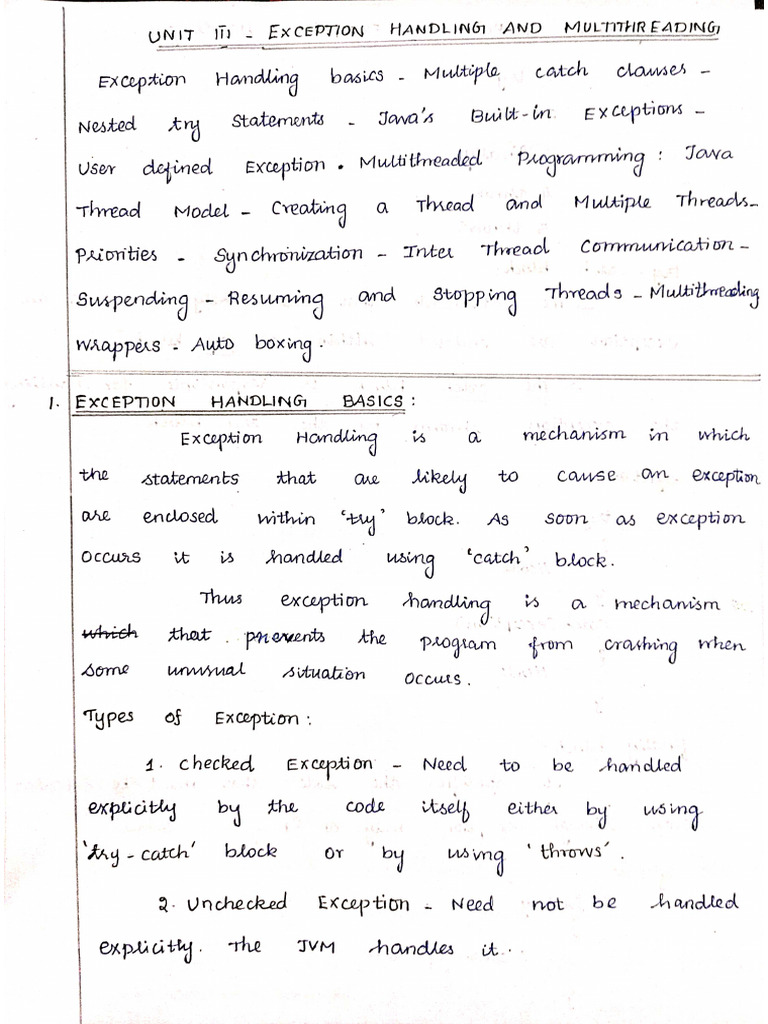 UNIT III - EXCEPTION HANDLING AND MULTITHREADING
Exception Handling basics - Multiple catch clauses -
Nested try Statements - Java's Built-in Exceptions -
User defined Exception. Multithreaded Programming: Java
Thread Model - Creating a Thread and Multiple Threads -
Priorities - Synchronization - Inter Thread Communication -
Suspending - Resuming and Stopping Threads - Multithreading
Wrappers - Auto boxing.
1. EXCEPTION HANDLING BASICS:
Exception Handling is a mechanism in which
the statements that are likely to cause an exception
are enclosed within 'try' block. As soon as exception
occurs it is handled using 'catch' block.
Thus exception handling is a mechanism
which that prevents the program from crashing when
some unusual situation occurs.
Types of Exception:
1. Checked Exception - Need to be handled
explicitly by the code itself either by using
'try-catch' block or by using 'throws'.
2. Unchecked Exception - Need not be handled
explicitly. The JVM handles it..